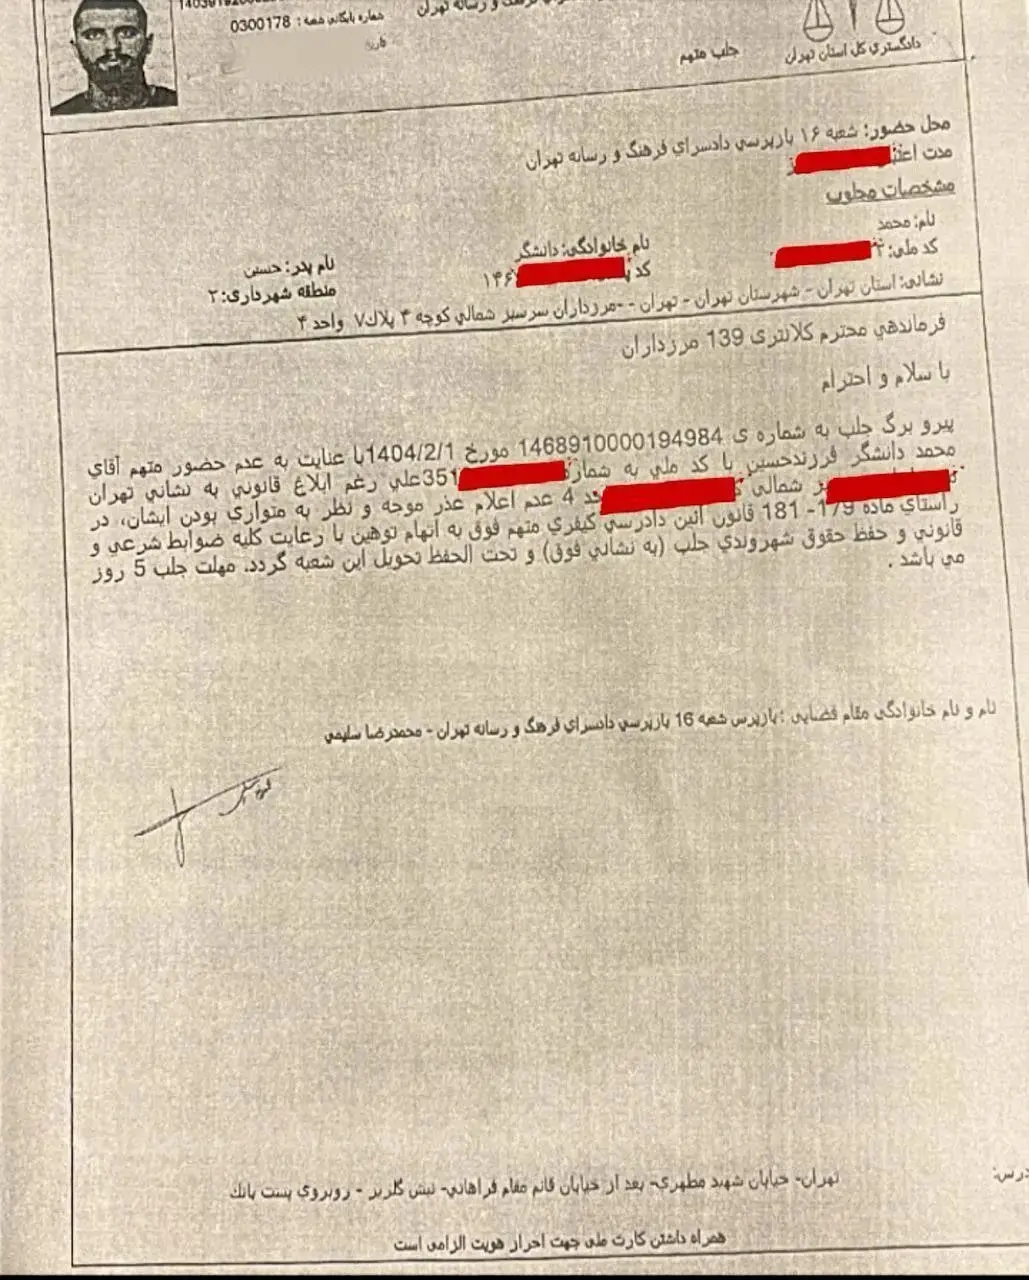 فرهنگ و رسانه تهران
شماره بایگانی شعبه: 0300178
تاریخ
دادگستری کل استان تهران
جلب متهم
محل حضور: شعبه ۱۶ بازپرسي دادسراي فرهنگ و رسانه تهران
مدت
مشخصات مجلوب
نام: محمد نام خانوادگی: دانشگر نام پدر: حسین
کد ملی: کد ۱۴۶ منطقه شهرداری: ۲
نشانی: استان تهران - شهرستان تهران - تهران - -مرزداران سرسبز شمالي کوچه ۴ پلاک۷ واحد ۴
فرماندهي محترم کلانتری 139 مرزداران
با سلام و احترام
پیرو برگ جلب به شماره ی 1468910000194984 مورخ 1404/2/1با عنایت به عدم حضور متهم آقاي
محمد دانشگر فرزندحسین با کد ملي به شماره 351علي رغم ابلاغ قانوني به نشاني تهران
شمالي 4 عدم اعلام عذر موجه و نظر به متواري بودن ایشان، در
راستاي ماده 179- 181 قانون آئین دادرسي کیفري متهم فوق به اتهام توهین با رعایت کلیه ضوابط شرعي و
قانوني و حفظ حقوق شهروندي جلب (به نشاني فوق) و تحت الحفظ تحویل این شعبه گردد. مهلت جلب 5 روز
مي باشد .
نام و نام خانوادگی مقام قضایی : بازپرس شعبه 16 بازپرسي دادسراي فرهنگ و رسانه تهران - محمدرضا سلیمي
تهران- خیابان شهید مطهري- بعد از خیابان قائم مقام فراهاني- نبش گلریز - روبروي پست بانك
همراه داشتن کارت ملی جهت احراز هویت الزامی است